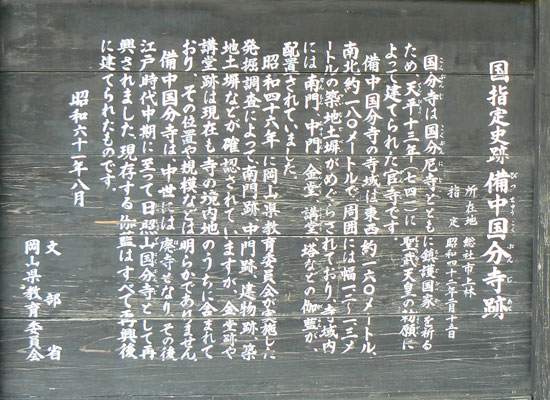 国指定史跡 備中国分寺跡
びっちゅうこくぶんじあと
所在地 総社市上林
指定 昭和四十三年二月十五日
国分寺は国分尼寺とともに鎮護国家を祈る
ため、天平十三年(七四一)に聖武天皇の勅願に
よって建てられた官寺です。
備中国分寺の寺域は東西約一六〇メートル、
南北約一八〇メートルで、周囲には幅一・二〜一・三メ
ートルの築地土塀がめぐらされており、寺域内
には、南門、中門、金堂、講堂、塔などの伽藍が、
配置されていました。
昭和四十六年に岡山県教育委員会が実施した
発掘調査によって南門跡、中門跡、建物跡、築
地土塀などが確認されていますが、金堂跡や
講堂跡は現在も寺の境内地のうちに含まれて
おり、その位置や規模などは明らかでありません。
備中国分寺は、中世には廃寺となり、その後
江戸時代中期に至って日照山国分寺として再
興されました。現存する伽藍はすべて再興後
に建てられたものです。
昭和六十一年八月
文部省
岡山県教育委員会